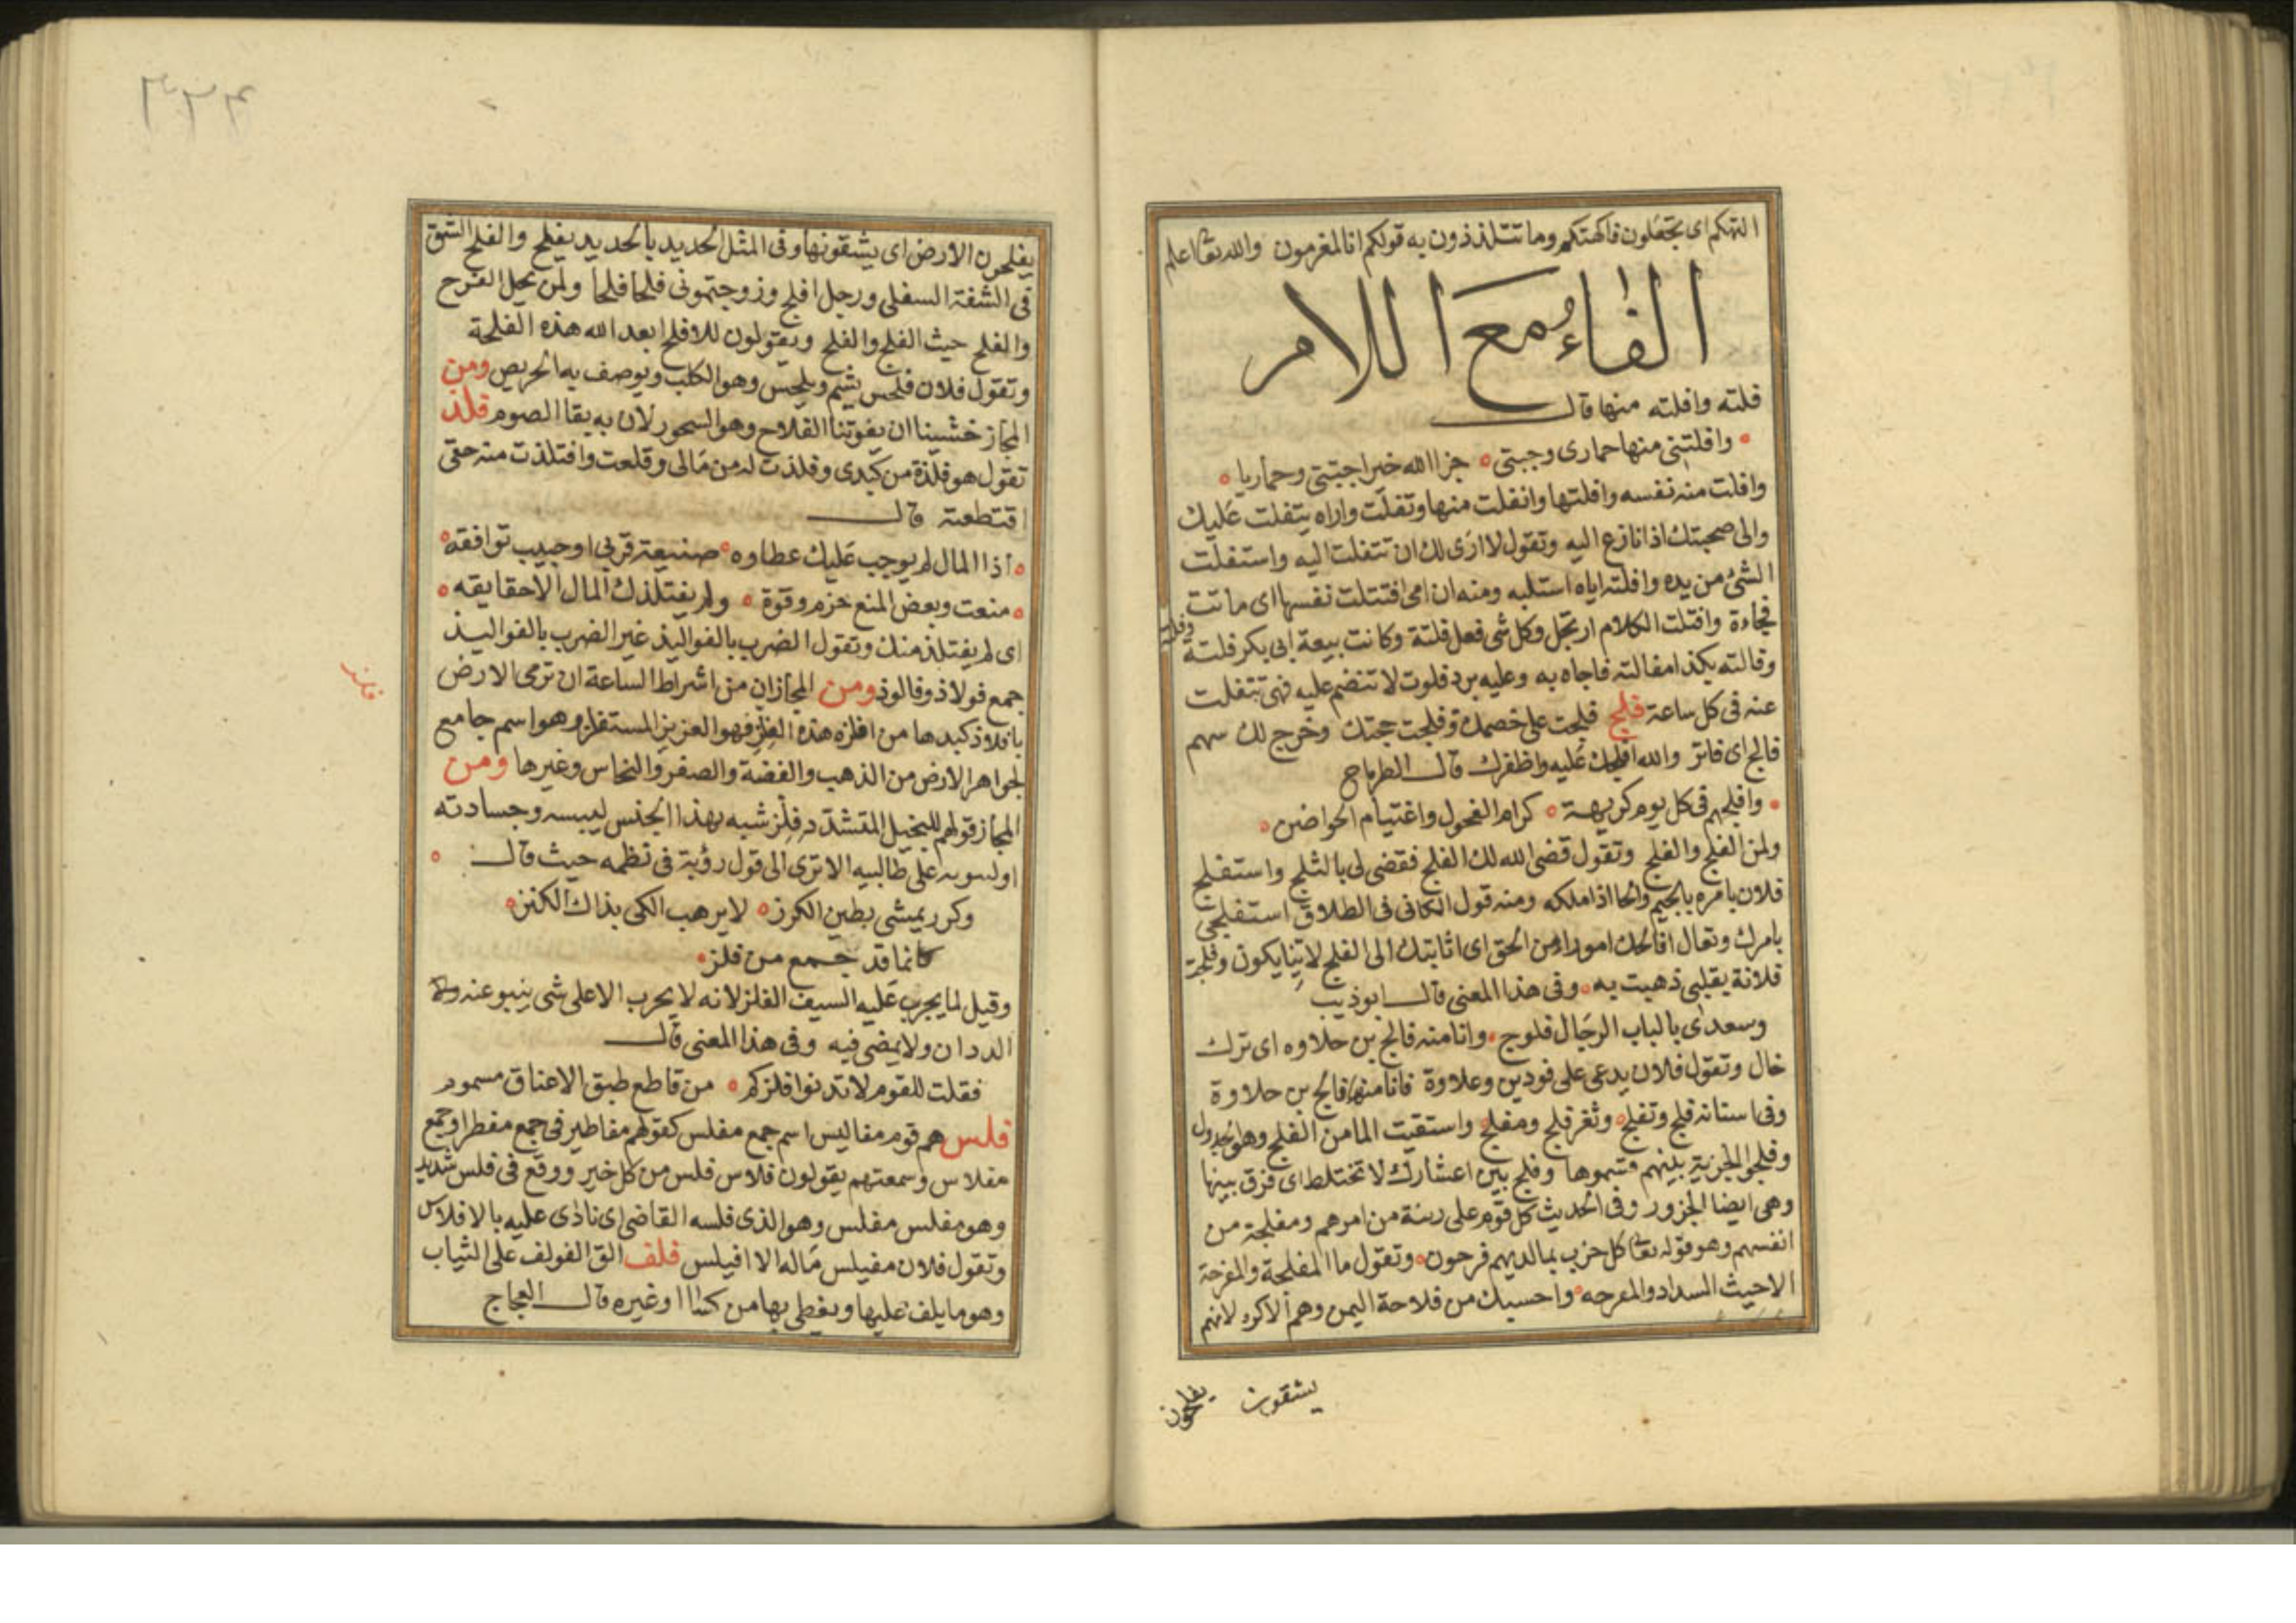 التهكم اى تجعلون فاكهتكم وما تتلذذون به قولكم انا لمغرمون والله تعا اعلم
الفاء مع اللام
فلته وافلته منها قال
وافلتنى منها حمارى وجبتى جزا الله خيرا جبتى وحماريا
وافلت منه نفسه وافلتها وانفلت منها وتفلت واراه يتفلت عليك
والى صحبتك اذا نازع اليه وتقول لا ارى لك ان تتفلت اليه واستفلت
الشئ من يده وافلته اياه استلبه ومنه ان امى افتتلت نفسها اى ماتت
فجاءة وافتلت الكلام ارتجل وكل شى فعل فلتة وكانت بيعة ابى بكر فلتة
وفالته بكذا مفالتة فاجاه به وعليه برد فلوت لا تنضم عليه فهى تتفلت
عنه فى كل ساعة فلج فلجت على خصمك وفلجت حجتك وخرج لك سهم
فالج اى فائز والله افلجك عليه واظفرك قال الطرماح
وافلجهم فى كل يوم كريهة كرام الفحول واغتيام الحواضن
ولمن الفلج والفلج وتقول قضى الله لك الفلج فقضى لى بالثلج واستفلج
فلان بامره بالجيم والحا اذا ملكه ومنه قول الكافى فى الطلاق استفلجى
بامرك وتعال افالجك امورا من الحق اى اثابتك الى الفلج لاينا يكون وفلجت
فلانة بقلبى ذهبت به وفى هذا المعنى قال ابو ذيب
وسعدى بالباب الرجال فلوج وانا منه فالج بن حلاوه اى ترك
خال وتقول فلان يدعى على فودين وعلاوة فانا منها فالج بن حلاوة
وفى اسنانه فلج وتفلج وثغر فلج ومفلج واستقيت الما من الفلج وهو الجدول
وفلجوا الجزية بينهم قسموها وفلج بين اعشارك لا تختلط اى فرق بينها
وهى ايضا الجزور وفى الحديث كل قوم على رينة من امرهم ومفلجة من
انفسهم وهو قوله تعا كل حزب بما لديهم فرحون وتقول ما المفلحة والمفرحة
الا حيث السداد والمرحه واحسبك من فلاحة اليمن وهم الاكره لانهم
يشقون يفلحون
٣٣٤
يفلحون الارض اى يشقونها وفى المثل الحديد بالحديد يفلح والفلح الشق
فى الشفة السفلى ورجل افلح وزوجتمونى فلحا فلحا ولمن يحل الفرح
والفلح حيث الفلج والفلح ويقولون للافلح ابعد الله هذه الفلحة
وتقول فلان فلحس يشم ويلحس وهو الكلب ويوصف به الحريص ومن
المجاز خشينا ان يفوتنا الفلاح وهو السحور لان به بقا الصوم فلذ
تقول هو فلذة من كبدى وفلذت له من مالى وقلعت وافتلذت منه حقى
اقتطعته قال
اذا المال لم يوجب عليك عطاوه صنيعة قربى او حبيب توافقه
منعت وبعض المنع حزم وقوة ولم يفتلذك المال الا حقايقه
اى لم يفتلذ منك وتقول الضرب بالفواليذ غير الضرب بالفواليذ
جمع فولاذ وفالوذ ومن المجاز ان من اشراط الساعة ان ترمى الارض
بافلاذ كبدها من افلزه هذه الفلز فهو العزيز المستفلز وهو اسم جامع
لجواهر الارض من الذهب والفضة والصفر والنحاس وغيرها ومن
المجاز قولهم للبخيل المتشدد فلز شبه بهذا الجنس ليبسه وجسادته
على طالبيه الا ترى الى قول رؤبة فى نظمه حيث قال
وكرر يمشى بطين الكرز لا يرهب الكى بذاك الكنز
كانما قد جمع من فلز
وقيل لما يجرب عليه السيف الفلز لانه لا يجرب الا على شى ينبو عنه
الددان ولا يمضى فيه وفى هذا المعنى قال
فقلت للقوم لا تدنوا فلزكم من قاطع طبق الاعناق مسموم
فلس هم قوم مفاليس اسم جمع مفلس كقولهم مفاطير فى جمع مفطر او جمع
مفلاس وسمعتهم يقولون فلاس فلس من كل خير ووقع فى فلس شديد
وهو مفلس مفلس وهو الذى فلسه القاضى اى نادى عليه بالافلاس
وتقول فلان مفيلس ماله الا افيلس فلف الق الفولف على الثياب
وهو ما يلف عليها ويغطى بها من كسا او غيره قال العجاج